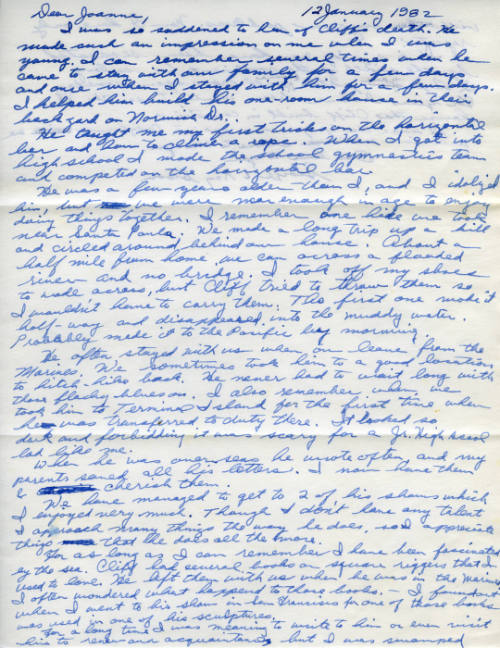 Dear Joanne, 12 January 1982
I was so saddened to hear of Cliff's death. He
made such an impression on me when I was
young. I can remember several times when he
came to stay with our family for a few days
and once when I stayed with him for a few days.
I helped him build his one-room house in their
back yard on Norwich Dr.
He taught me my first tricks on the horizontal
bar and how to climb a rope. When I got into
high school I made the school gymnastics team
and competed on the horizontal bar
He was a few years older than I, and I idolized
him, but we were near enough in age to enjoy
doing things together. I remember one hike we took
near Santa Paula. We made a long trip up a hill
and circled around behind our house. About a
half mile from home we can across a flooded
river and no bridge. I took off my shoes
to wade across, but Cliff tried to throw them so
I wouldn't have to carry them. The first one made it
half-way and disappeared into the muddy water.
Probably made it to the Pacific by morning.
He often stayed with us when on leave from the
Marines. We sometimes took him to a good location
to hitch-hike back. He never had to wait long with
those flashy blues on. I also remember when we
took him to Terminal Island for the first time when
he was transferred to duty there. It looked so
dark and forbidding it was scary for a Jr. High School
lad like me.
When he was overseas he wrote often and my
parents saved all his letters. I now have them
& cherish them.
We have managed to get to 2 of his shows which
I enjoyed very much. Though I don't have any talent
I approach many things the way he does, so I appreciate
things that he does all the more.
For as long as I can remember I have been fascinated
by the sea. Cliff had several books on square riggers that I
used to love. He left them with us when he was in the Marines
I often wondered what happend to those books. – I found out
when I went to his show in San Francisco for one of those books
was used in one of his sculptures.
For a long time I was meaning to write to him or even visit
him to renew our acquaintance, but I was swamped